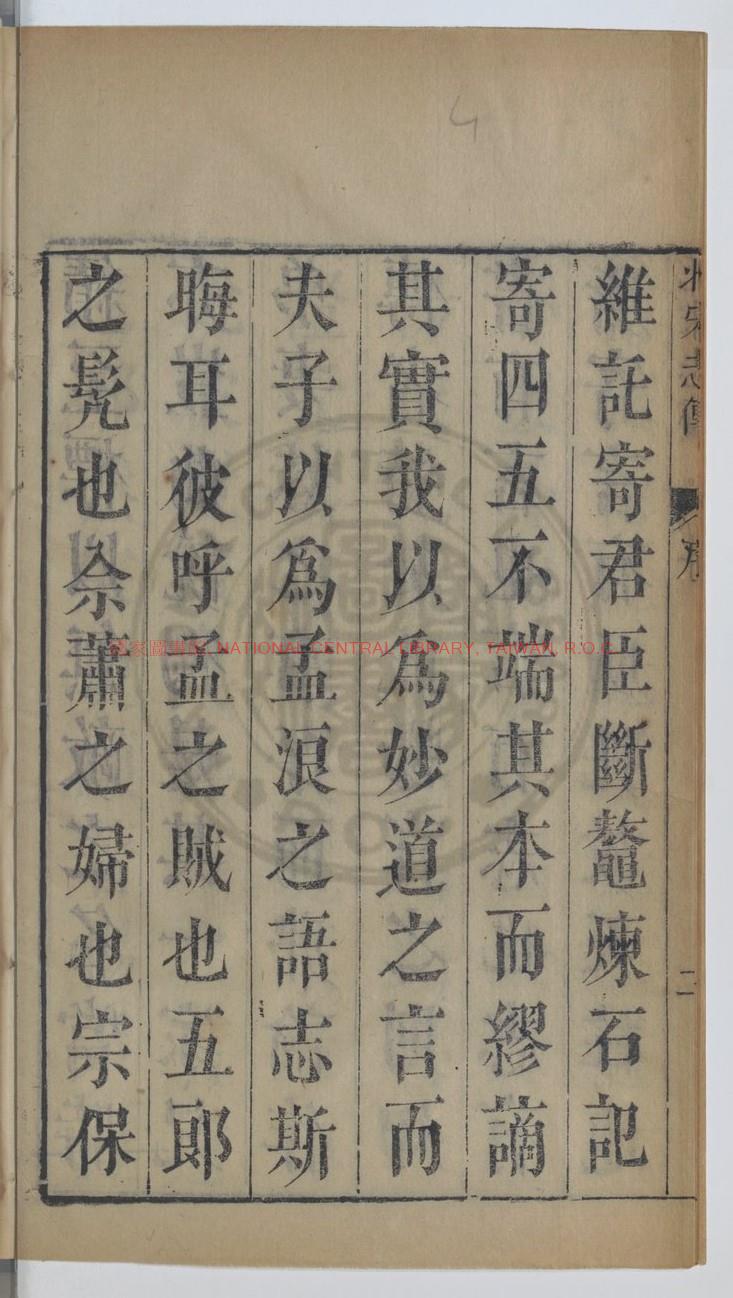 維託寄君臣斷鼇煉石記
寄四五不端其本而繆謫
其實我以爲妙道之言而
夫子以爲孟浪之語志斯
晦耳彼呼孟之賊也五郎
之髡也佘蕭之婦也宗保
宋志傳
序
二
4
國家圖書館 NATIONAL CENTRAL LIBRARY, TAIWAN, R.O.C.